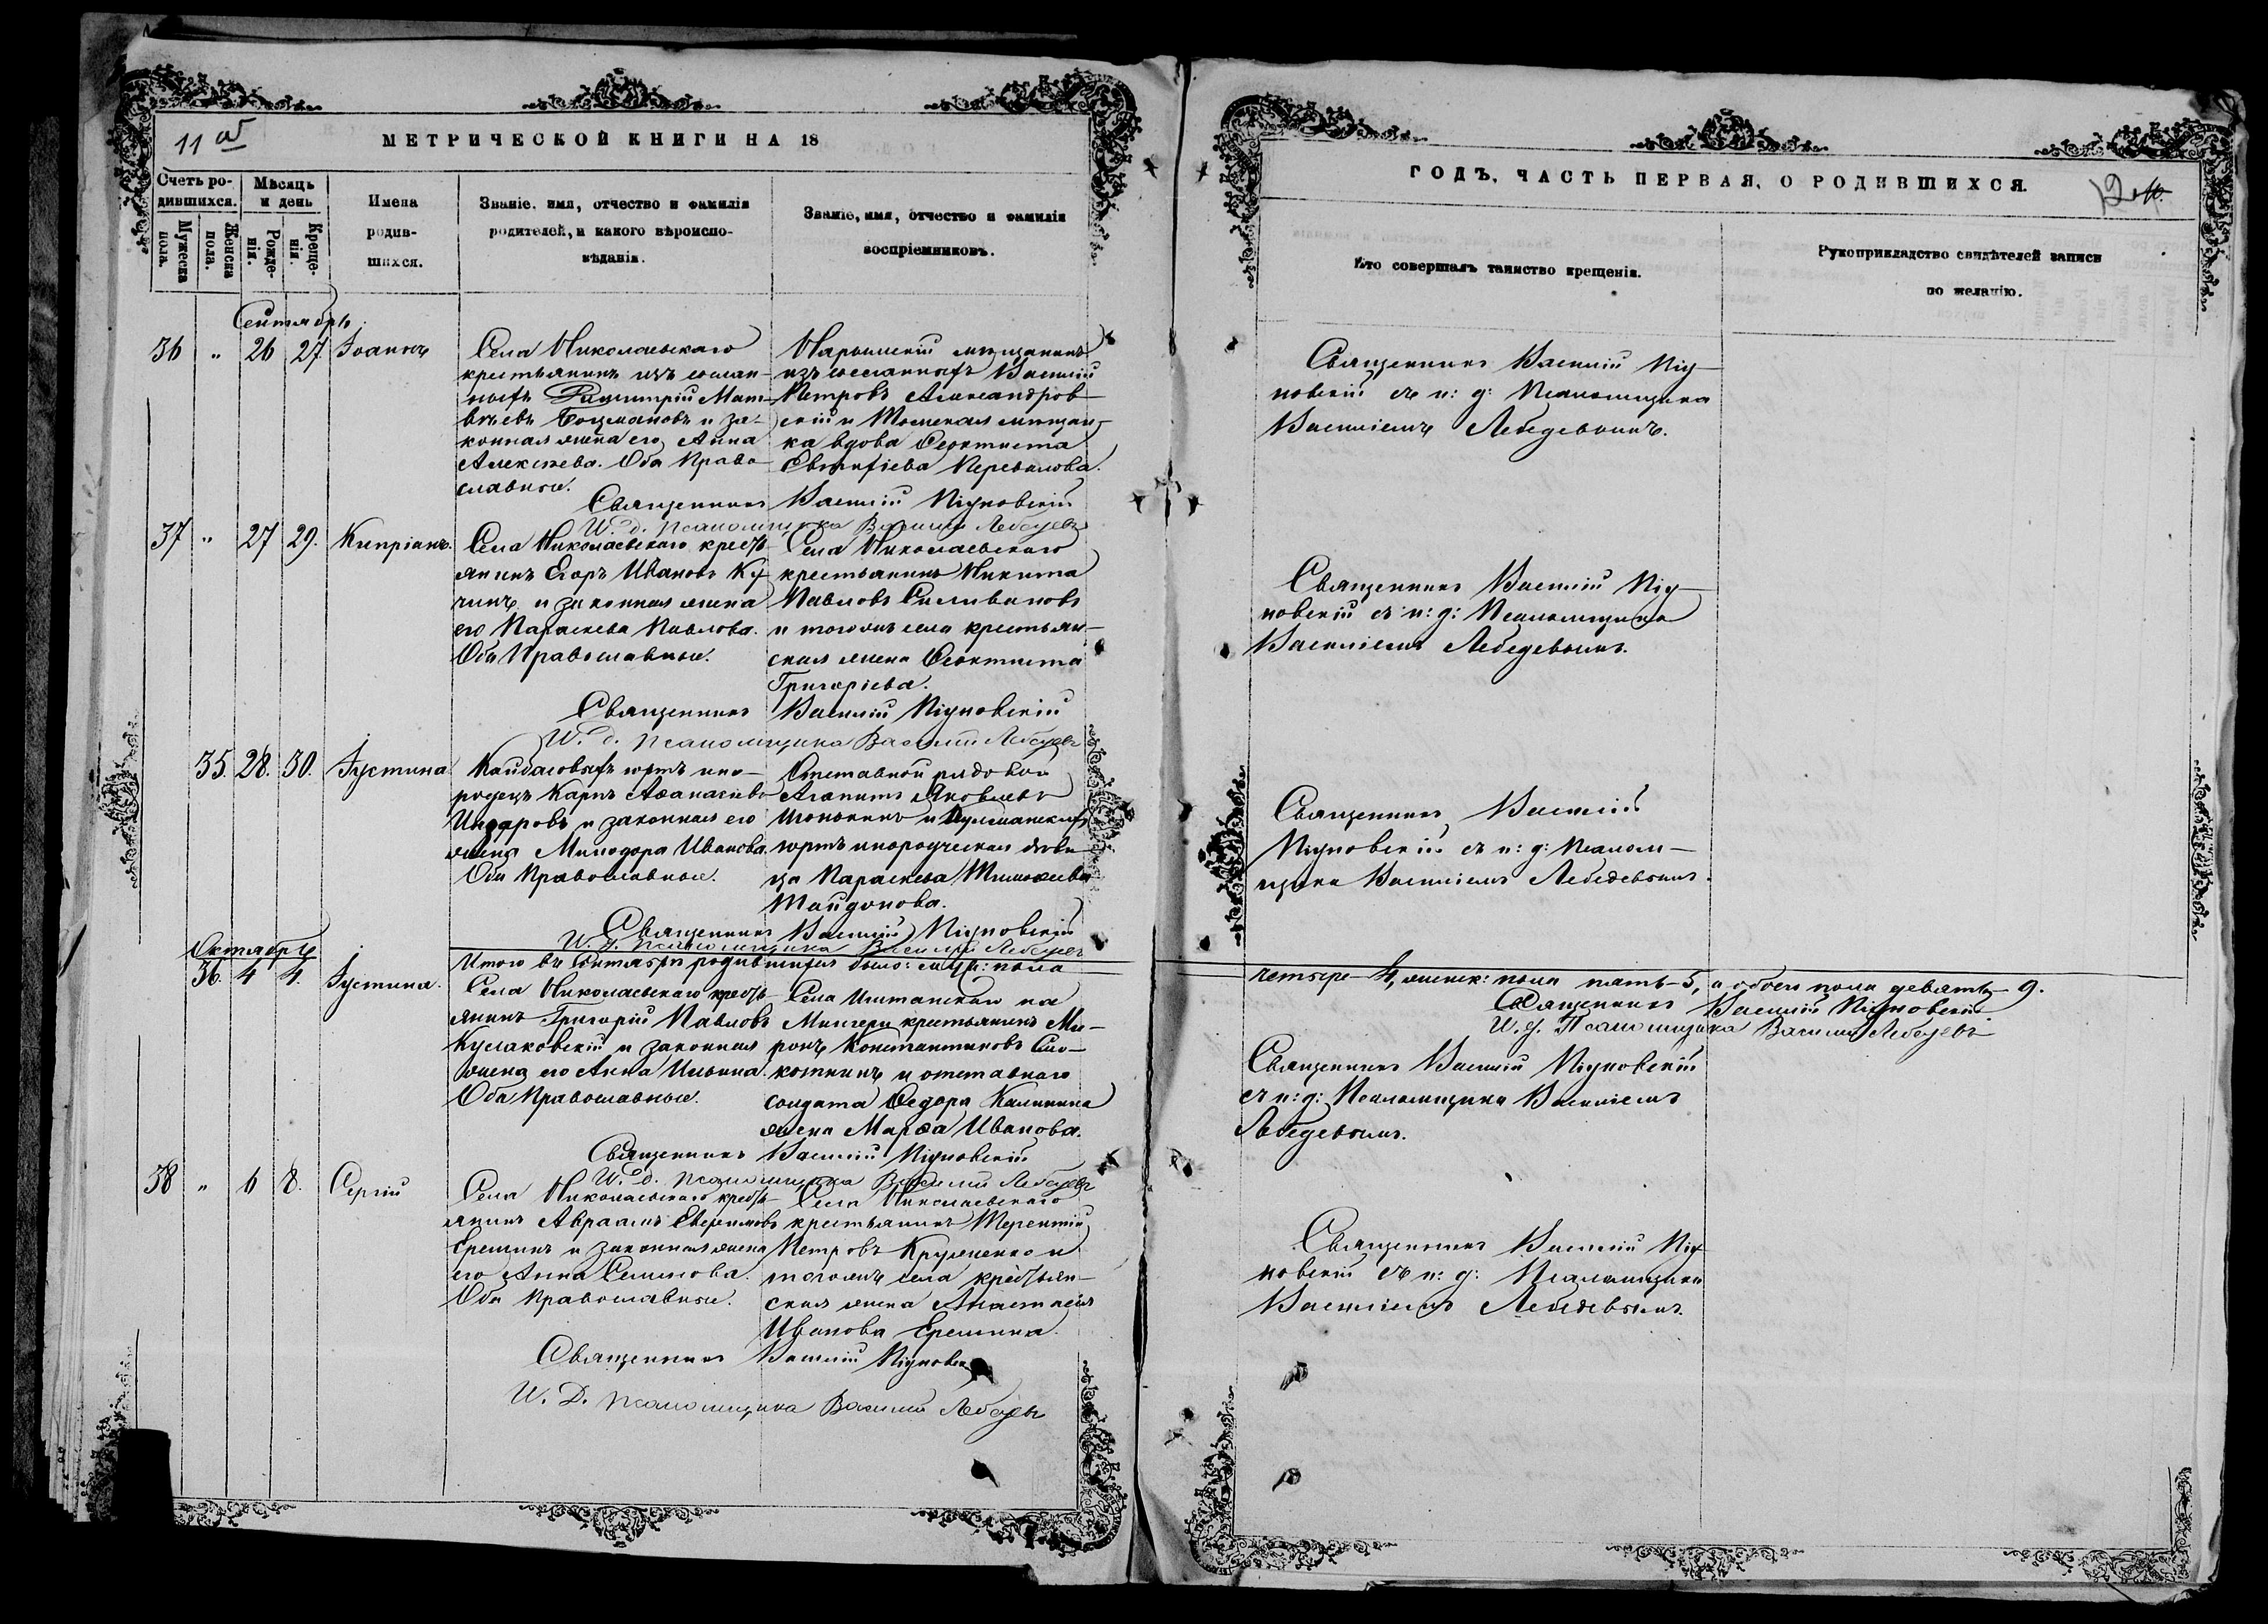 11 об
МЕТРИЧЕСКОЙ КНИГИ НА 18
Счетъ ро-
дившихся.
Мужеска пола.
Женска пола.
Мѣсяцъ
и день
Рожде-
нія.
Креще-
нія.
Имена
родив-
шихся.
Званіе, имя, отчество и фамилія
родителей, и какого вѣроиспо-
вѣданія.
Званіе, имя, отчество и фамилія
воспріемниковъ.
Сентябрь
36 " 26 27 Іоаннъ
Села Николаевскаго
крестьянинъ изъ ссыль-
ныхъ Димитрій Мат-
вѣевъ Боцмановъ и за-
конная жена его Анна
Алексѣева. Оба Право-
славные.
Нарымскій мѣщанинъ
изъ ссыльныхъ Василій
Петровъ Александров-
скій и Томская мѣщан-
ка вдова Ѳеоктиста
Евтихіева Перевалова.
Священникъ Василій Піуновскій
И. д. псаломщика Василій Лебедевъ
37 " 27 29. Кипріанъ.
Села Николаевскаго кресть-
янинъ Егоръ Ивановъ Ку-
чинъ и законная жена
его Параскева Павлова.
Оба Православные.
Села Николаевскаго
крестьянинъ Никита
Павловъ Селивановъ
и тогоже села крестьян-
ская жена Ѳеоктиста
Григоріева.
Священникъ Василій Піуновскій
И. д. псаломщика Василій Лебедевъ
35. 28. 30. Іустина
Кайбасовыхъ юртъ ино-
родецъ Карпъ Аѳанасіевъ
Индаровъ и законная его
жена Минодора Иванова.
Оба Православные.
Отставной рядовой
Агапитъ Яковлевъ
юртъ инородческая дѣви-
ца Параскева Тимоѳеева
Тайдонова.
Священникъ Василій Піуновскій
И. д. псаломщика Василій Лебедевъ
Октябрь
Итого въ Сентябрѣ родившихся было: муж: пола
36. 4 4. Іустина.
Села Николаевскаго кресть-
янинъ Григорій Павловъ
Кулаковскій и законная
жена его Анна Ильина.
Оба Православные.
Села Иштанскаго на
крестьянинъ Ми-
ронъ Константиновъ Ско-
котнинъ и отставнаго
солдата Ѳедора Калинина
жена Марѳа Иванова.
Священникъ Василій Піуновскій
И. д. псаломщика Василій Лебедевъ
38 " 6 8. Сергій
Села Николаевскаго кресть-
янинъ Авраамъ
Ереминъ и законная жена
его Анна Семенова.
Оба Православные.
Села Николаевскаго
крестьянинъ Терентій
Петровъ Круляченко и
тогоже села крестьян-
ская жена Анастасія
Иванова Еремина.
Священникъ Василій Піуновскій
И. Д. псаломщика Василій Лебедевъ
ГОДЪ, ЧАСТЬ ПЕРВАЯ, О РОДИВШИХСЯ.
12
Кто совершалъ таинство крещенія.
Рукоприкладство свидѣтелей записи
по желанію.
Священникъ Василій Піу-
новскій съ и: д: Псаломщика
Василіемъ Лебедевымъ.
Священникъ Василій Піу-
новскій съ и: д: Псаломщика
Василіемъ Лебедевымъ.
Священникъ Василій
Піуновскій съ и: д: Псалом-
щика Василіемъ Лебедевымъ.
четыре 4, женск: пола пять - 5, а обоего пола девять - 9.
Священникъ Василій Піуновскій
И. д. Псаломщика Василій Лебедевъ
Священникъ Василій Піуновскій
съ и: д: Псаломщика Василіемъ
Лебедевымъ.
Священникъ Василій Піу-
новскій съ и: д: Псаломщика
Василіемъ Лебедевымъ.